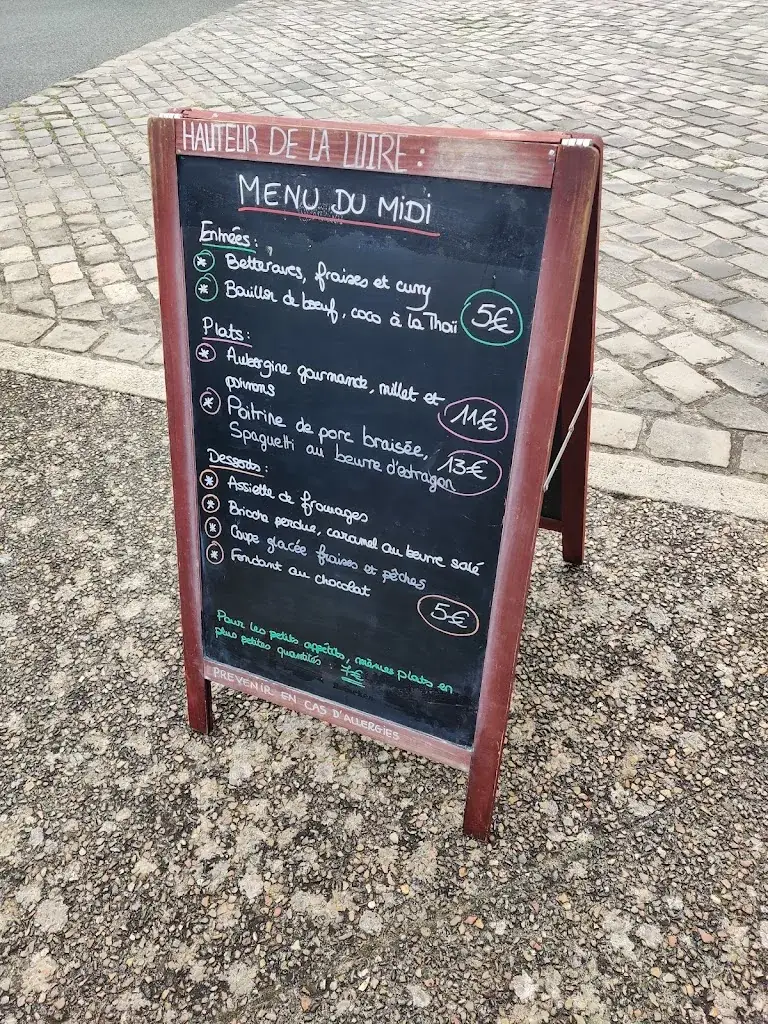 HAUTEUR DE LA LOIRE :
MENU DU MiDi
Entrées :
* Betteraves, fraises et curry
* Bouillon de bœuf, coco à la Thaï
5€
Plats :
* Aubergine gourmande, millet et
poivrons
11€
* Poitrine de porc braisée,
Spaguetti au beurre d'estragon
13€
Desserts :
* Assiette de fromages
* Brioche perdue, caramel au beurre salé
* Coupe glacée fraises et pêches
* Fondant au chocolat
5€
Pour les petits appétits, mêmes plats en
plus petites quantités : 7€
PREVENIR EN CAS D'ALLERGIES